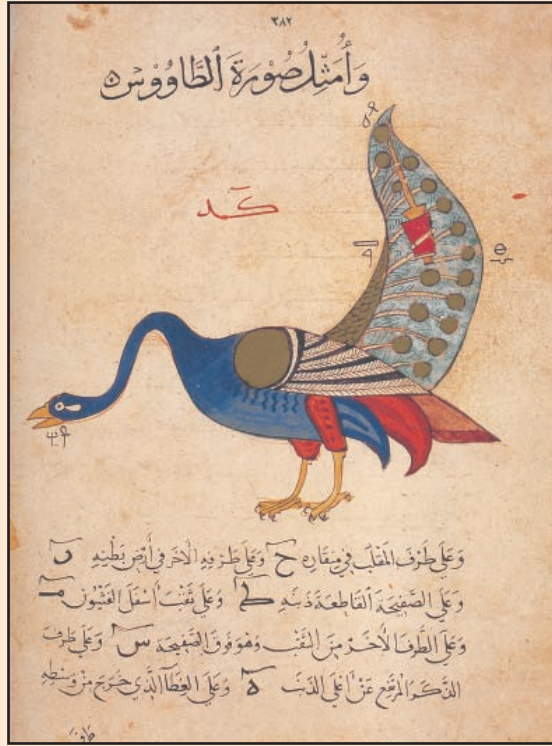 ٣٨٢
وَأُمَثِّلُ صُوْرَةَ الطَّاوُوْسِ
وَعَلى طَرَفِ المَقلَب في مِنقَارِهِ ح وَعَلى طَرَفِهِ الاخَر في أرْضِ بَطْنِهِ
وَعَلى الصَّفيحَةِ القَاطعَة ذَنَبَه ط وَعَلى ثَقْبٍ أسْفَل
وَعَلى الطَّرَف الأخَر مِنَ الثَّقْب وَهوَ فَوقَ الصَّفيحَةِ س وَعَلى طَرَف
الذَّكَر المرتفع عَن اعلى الذنَبِ ه وَعَلى الغِطَآ الَّذي خَرَجَ مِنْ وَسْطِهِ